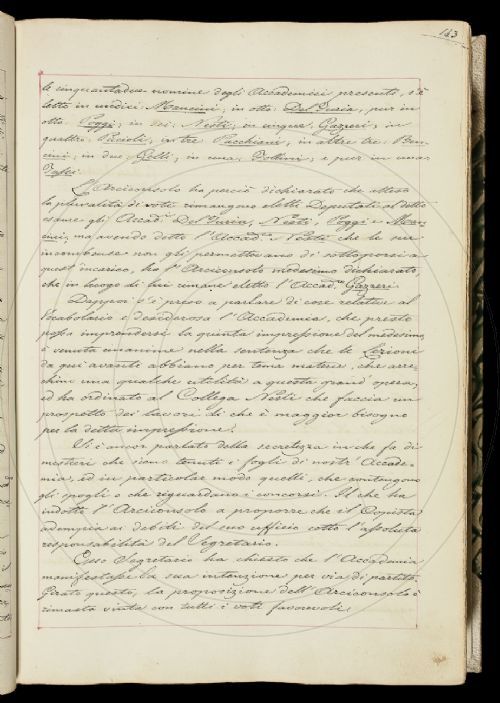 143
le cinquantadue nomine degli Accademici presenti, e
lette in undici: Mancini; in otto Del Furia, pur in
otto Poggi; in sei: Nesti; in cinque: Gazzeri; in
quattro: Paciolli; in tre Pucchiani; in altre tre
in due: Gelli; in una: Follini; e pur in una:
L'Arciconsolo ha perciò dichiarato che attesa
la pluralità di voti rimangono eletti Deputati al detto
esame gli Accad. Del Furia, Nesti, Poggi e Man-
cini; ma avendo detto l'Accad. Nesti che le sue
incombenze non gli permettevano di sottoporsi a
quest'incarico, ha l'Arciconsolo medesimo dichiarato,
che in luogo di lui rimane eletto l'Accad. Gazzeri
Dappoi s'è preso a parlare di cose relative al
Vocabolario e desiderosa l'Accademia, che presto
possa imprendersi la quinta impressione del medesimo
è venuta unanime nella sentenza che le Lezioni
da qui avanti abbiano per tema materie, che arre-
chino una qualche utilità a questa grand'opera,
ed ha ordinato al Collega Nesti che faccia un
prospetto dei lavori di che è maggior bisogno
per la detta impressione.
Si è ancor parlato della secretezza in che fa di
mestieri che siano tenuti i fogli di nostr'Accade-
mia, ed in particolar modo quelli, che contengono
gli spogli e che riguardano i concorsi. Il che ha
indotto l'Arciconsolo a proporre che il Copista
adempia ai debiti del suo ufficio sotto l'assoluta
responsabilità del Segretario.
Esso Segretario ha chiesto che l'Accademia
manifestasse la sua intenzione per via di partito.
Girato questo, la proposizione dell'Arciconsolo è
rimasta vinta con tutti i voti favorevoli.